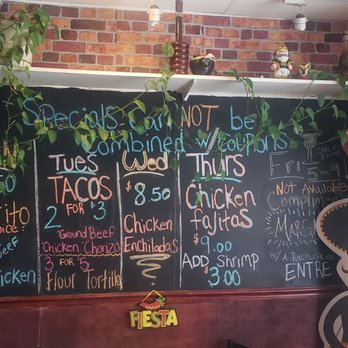 Specials Can NOT be
Combined w/coupons
ito
Beef
chicken
Tues
TACOS
2 FOR $3
Ground Beef
Chicken Chorizo
3 FOR $5
Flour Tortilla
Wed
$8.50
Chicken
Enchiladas
Thurs
Chicken
fajitas
$9.00
ADD Shrimp
$3.00
Fri
5-9
Not Available
Compliment
w/ Purchase of
ENTRE
FIESTA